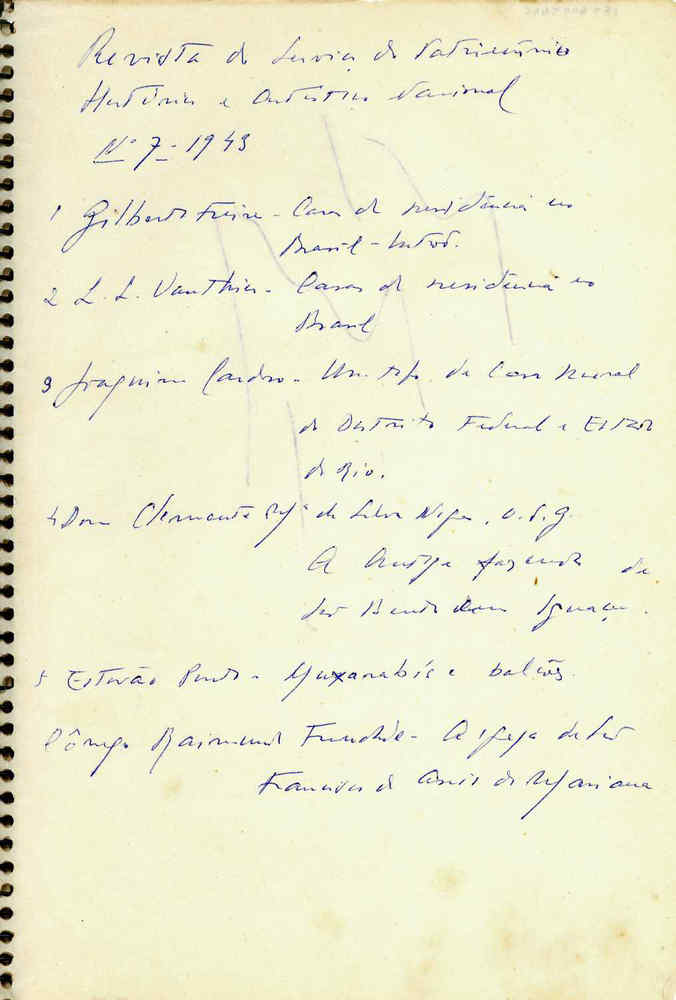 Revista do Serviço do Patrimônio
Histórico e Artístico Nacional
Nº 7 - 1943
1 Gilberto Freire - Casas de residência no
Brasil - Introd.
2 L. L. Vauthier - Casas de residência no
Brasil
3 Joaquim Cardoso - Um tipo de Casa Rural
do Distrito Federal e Estado
do Rio.
4 Dom Clemente Mª da Silva Nigra, O.S.B.
A Antiga fazenda de
São Bento em Iguaçu.
5 Estevão Pinto - Muxarabis e balcões.
Cônego Raimundo Trindade - A igreja de São
Francisco de Assis de Mariana